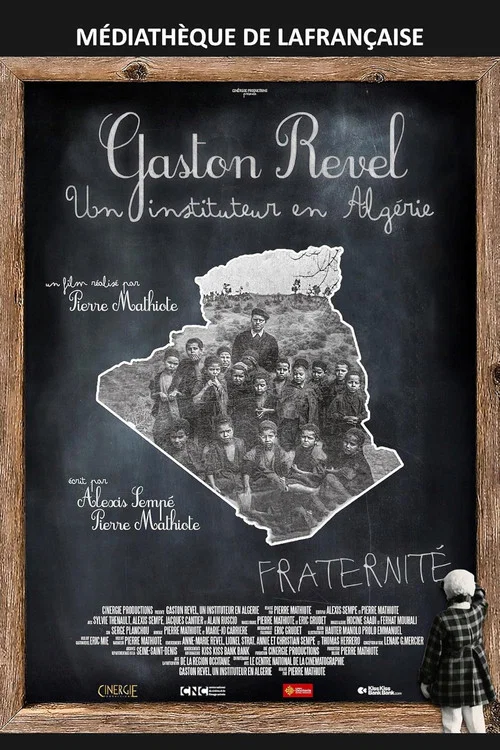 MÉDIATHÈQUE DE LAFRANÇAISE
CINERGIE PRODUCTIONS
présente
Gaston Revel
Un instituteur en Algérie
un film réalisé par
Pierre Mathiote
écrit par
Alexis Sempé
Pierre Mathiote
FRATERNITÉ
CINERGIE PRODUCTIONS PRÉSENTE GASTON REVEL, UN INSTITUTEUR EN ALGERIE PIERRE MATHIOTE ALEXIS SEMPE & PIERRE MATHIOTE
AVEC SYLVIE THENAULT, ALEXIS SEMPE, JACQUES CANTIER & ALAIN RUSCIO PIERRE MATHIOTE & ERIC GRUDET HOCINE SAADI & FERHAT MOUHALI
SON SERGE PLANCHOU PIERRE MATHIOTE & MARIE-JO CARRIERE ERIC GRUDET HAUTER MANOLO PAOLO EMMANUEL
ERIC MIE PIERRE MATHIOTE ANNE-MARIE REVEL, LIONEL STRAT, ANNE ET CHRISTIAN SEMPE THOMAS HERRERO LENAIC G.MERCIER
SEINE-SAINT-DENIS KISS KISS BANK BANK CINERGIE PRODUCTIONS PIERRE MATHIOTE
DE LA REGION OCCITANIE LE CENTRE NATIONAL DE LA CINEMATOGRAPHIE
GASTON REVEL, UN INSTITUTEUR EN ALGERIE PIERRE MATHIOTE
CINERGIE
CNC
KissKiss
BankBank.com